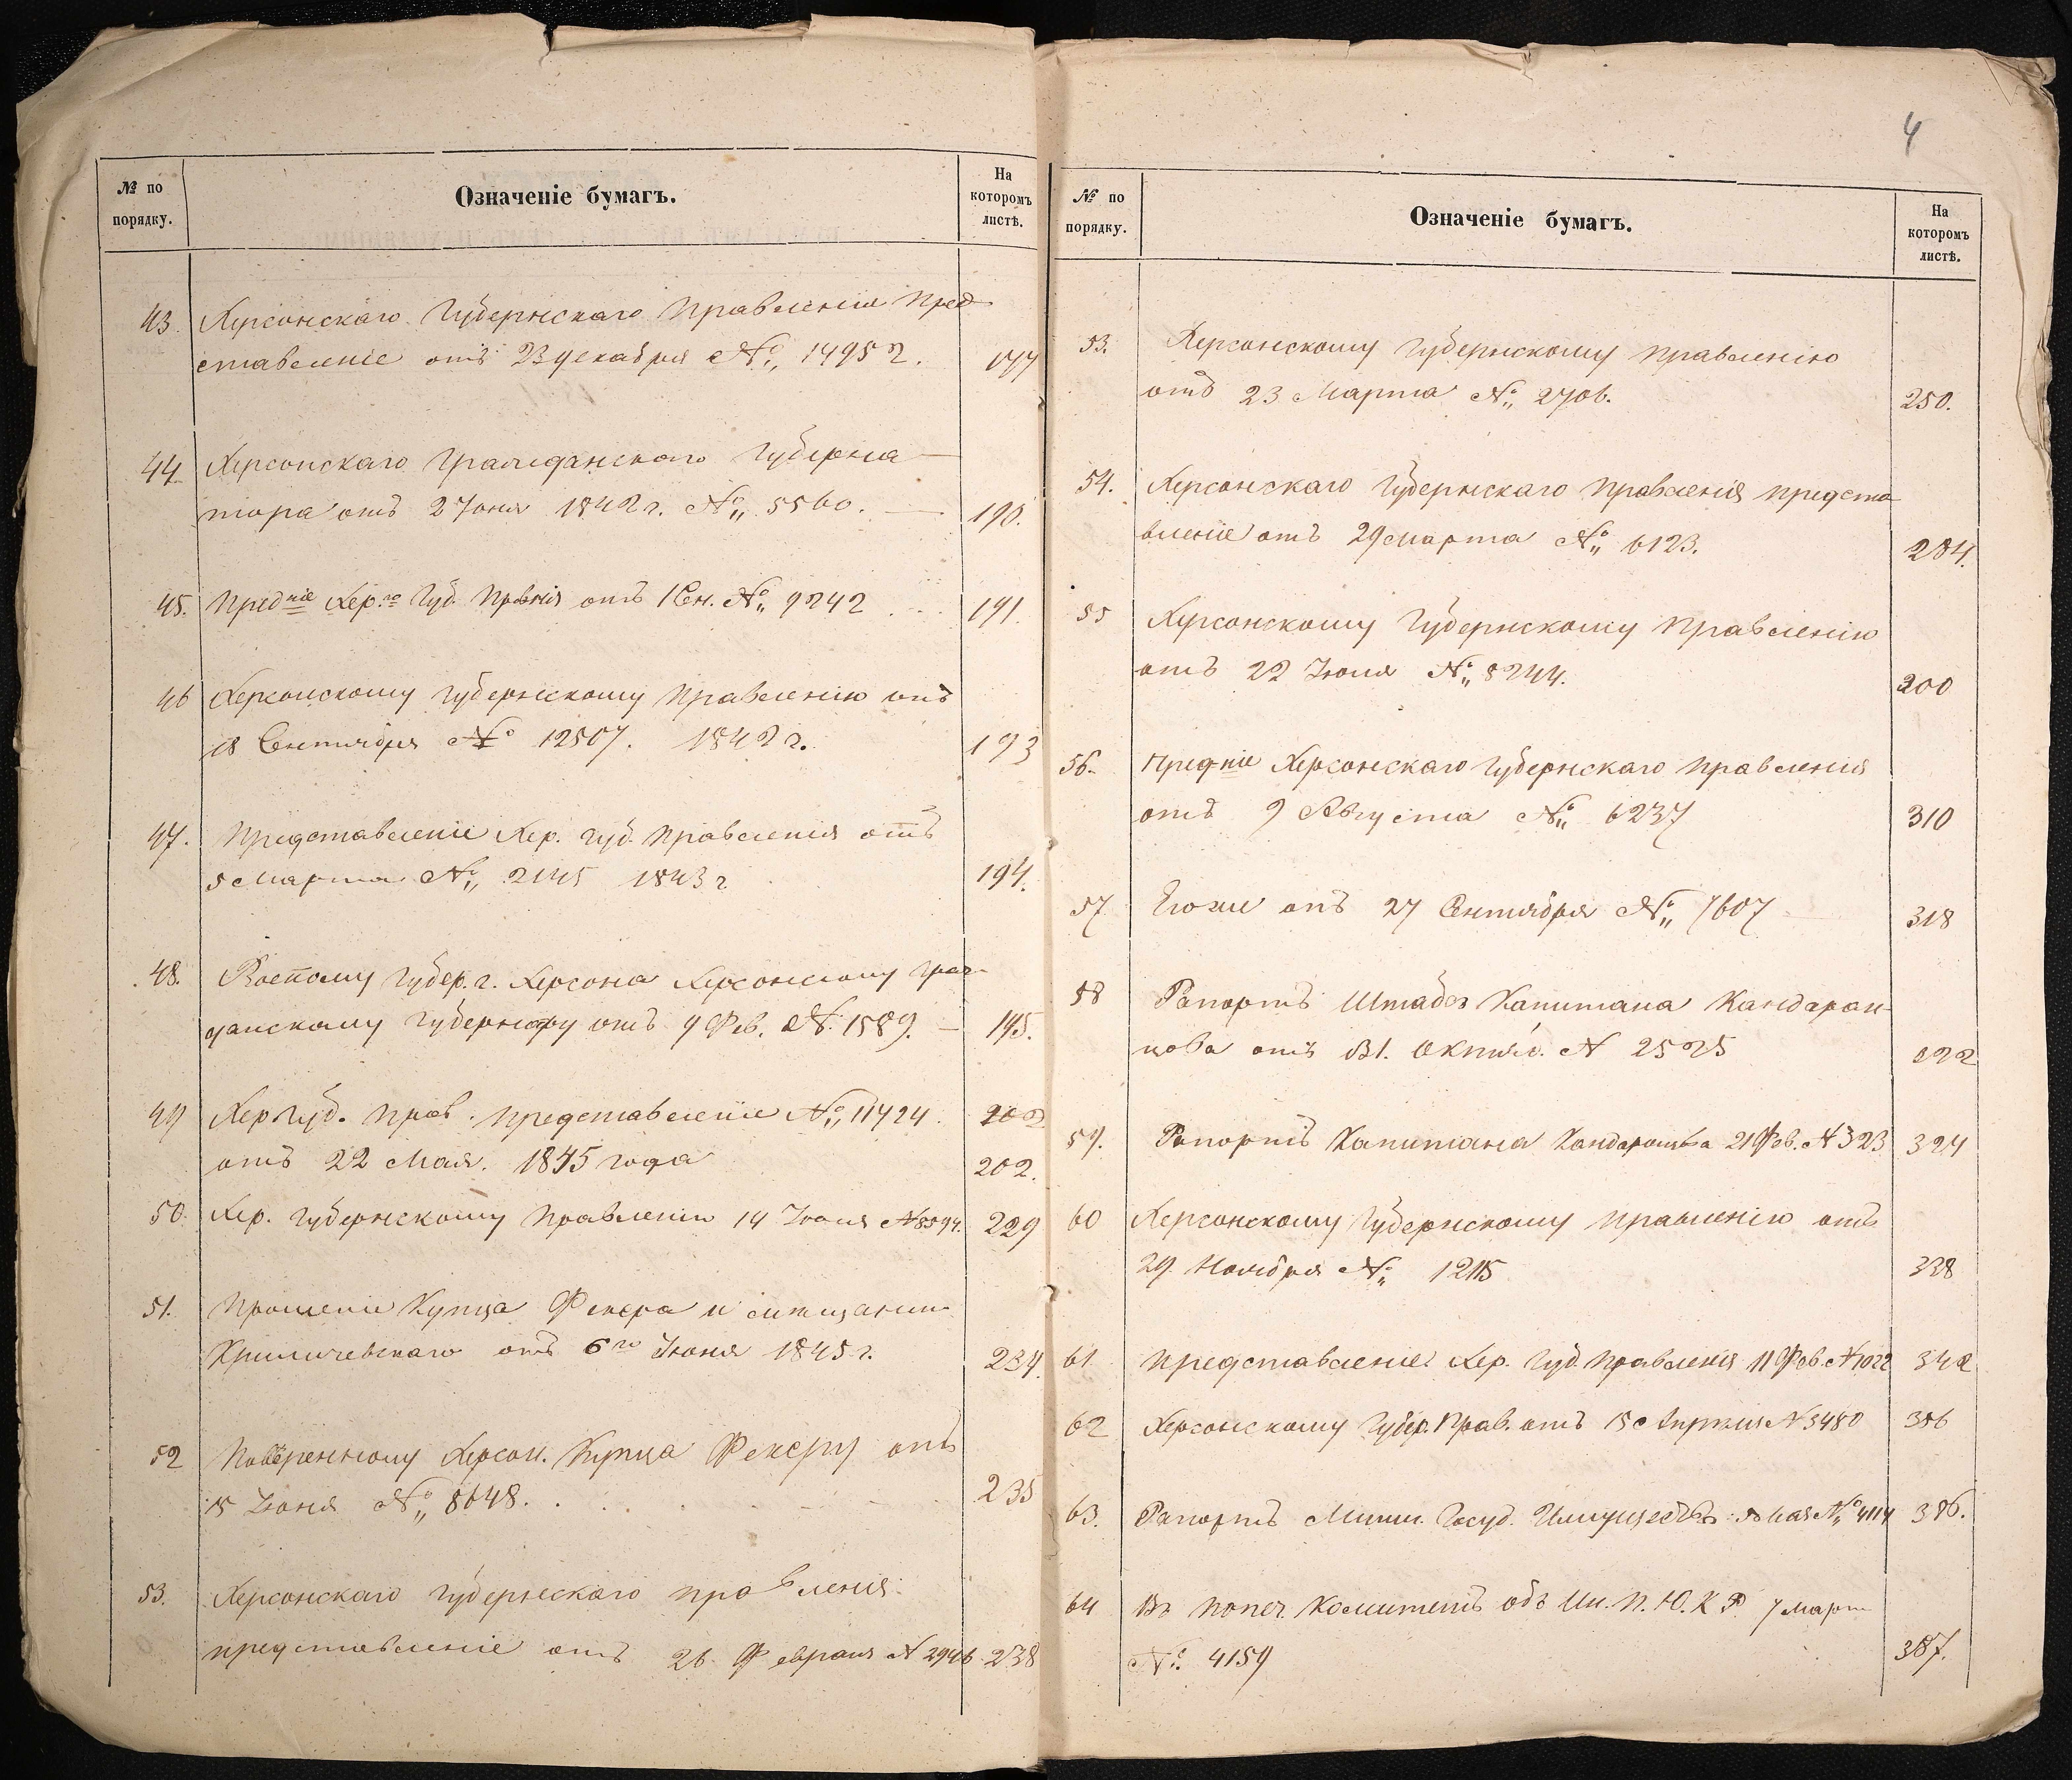 № по порядку.
Означеніе бумагъ.
На которомъ листѣ.
43. Херсонскаго Губернскаго Правленія пред-
ставленіе отъ 23 декабря №„ 14952. 177
44. Херсонскаго Гражданскаго Губерна-
тора отъ 2 Іюня 1842 г. №„ 5560. 190.
45. Предніе Хер.го Губ. Правнія отъ 1 Сен. №„ 9242 191.
46 Херсонскому Губернскому Правленію отъ
18 Сентября № 12507. 1842 г. 193
47. Представленіе Хер. Губ. Правленія отъ
5 Марта №„ 2145 1843 г 194.
48. Военному Губер. г. Херсона Херсонскому граж-
данскому Губернатору отъ 9 Фев. № 1589. 195.
49 Хер. Губ. Прав. представленіе №„ 11424. 202
отъ 22 Мая. 1845 года 202.
50. Хер. Губернскому Правленію 14 Іюня № 8594. 229
51. Прошеніе Купца Фекера и мѣщанин
отъ 6го Іюня 1845 г. 234.
52 Повѣренному Херсон. Купца Фекеру отъ
15 Іюня №„ 8648. 235
53. Херсонскаго Губернскаго правленія
представленіе отъ 26 Февраля № 2946 238
4
№ по порядку.
Означеніе бумагъ.
На которомъ листѣ.
53. Херсонскому Губернскому правленію
отъ 23 Марта №„ 2706. 250.
54. Херсонскаго Губернскаго правленія предста-
вленіе отъ 29 Марта №„ 6123. 284.
55 Херсонскому Губернскому Правленію
отъ 22 Іюля №„ 8244. 300
56. Пред-ніе Херсонскаго Губернскаго правленія
отъ 9 Августа №„ 6237 310
57 Егоже отъ 27 Сентября №„ 7607 318
58 Рапортъ Штабсъ Капитана Кандаран-
цова отъ 31. Октяб. № 2525 322
59. Рапортъ Капитана 21 Фев. № 323 324
60 Херсонскому Губернскому правленію отъ
29 Ноября №„ 12115 338
61 Представленіе Хер. Губ. Правленія 11 Фев. № 1022 342
62 Херсонскому Губер. Прав. отъ 15 Апрѣля № 5480 356
63. Рапортъ Минис. Госуд. Имуществъ Мая №„ 4114 386.
64 Въ попеч. Комитетъ объ Ин. П. Ю. К. Р. 7 март
№ 4159 387.